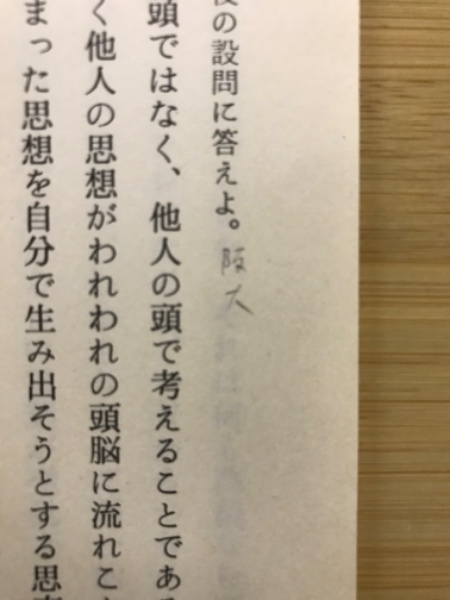 の設問に答えよ。阪大
頭ではなく、他人の頭で考えることである
く他人の思想がわれわれの頭脳に流れこ
まった思想を自分で生み出そうとする思